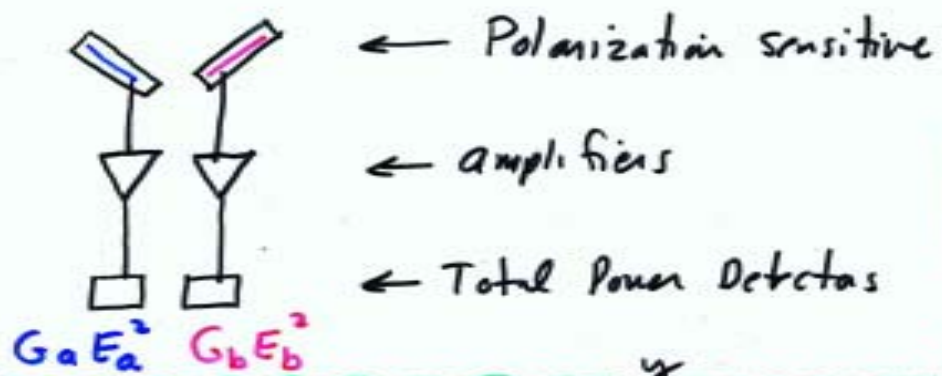 ← Polarization sensitive
← amplifiers
← Total Power Detectors
GaEa² GbEb²
y